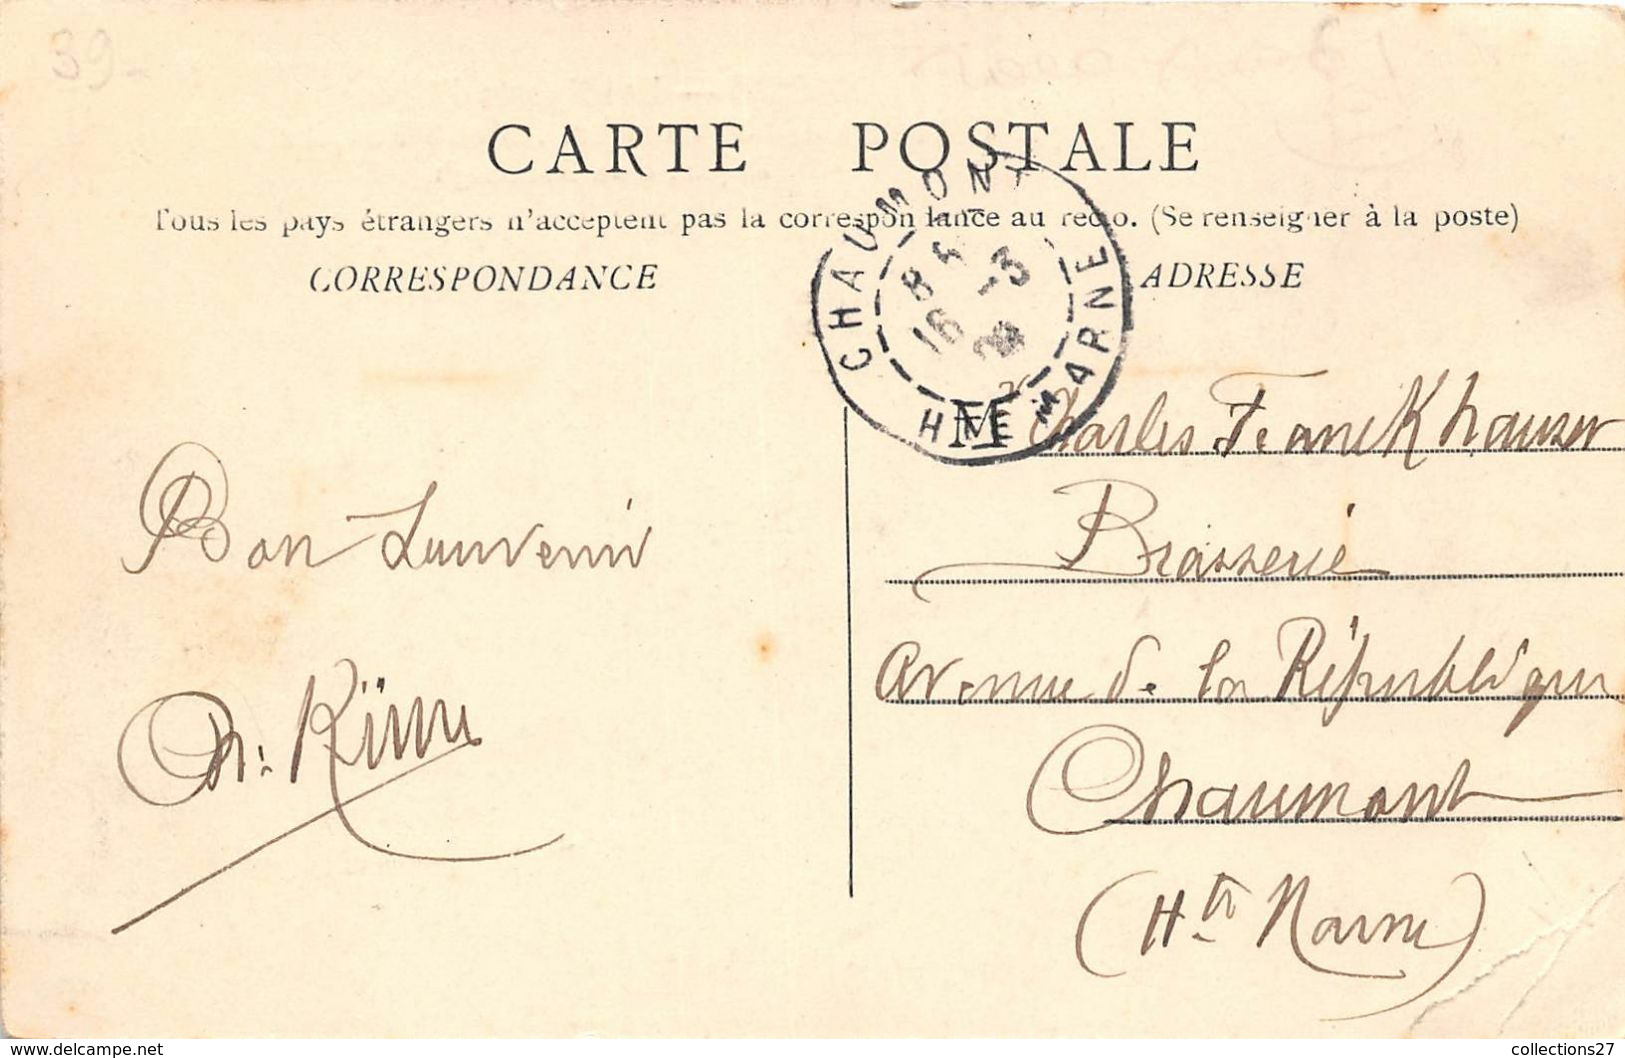 39-
CARTE POSTALE
Tous les pays étrangers n'acceptent pas la correspondance au recto. (Se renseigner à la poste)
CORRESPONDANCE
ADRESSE
CHAUMONT
8
16 -3
HTE MARNE
M Charles Franckhauser
Brasserie
Avenue de la République
Chaumont
(Hte Marne)
Bon Souvenir
www.delcampe.net
collections27